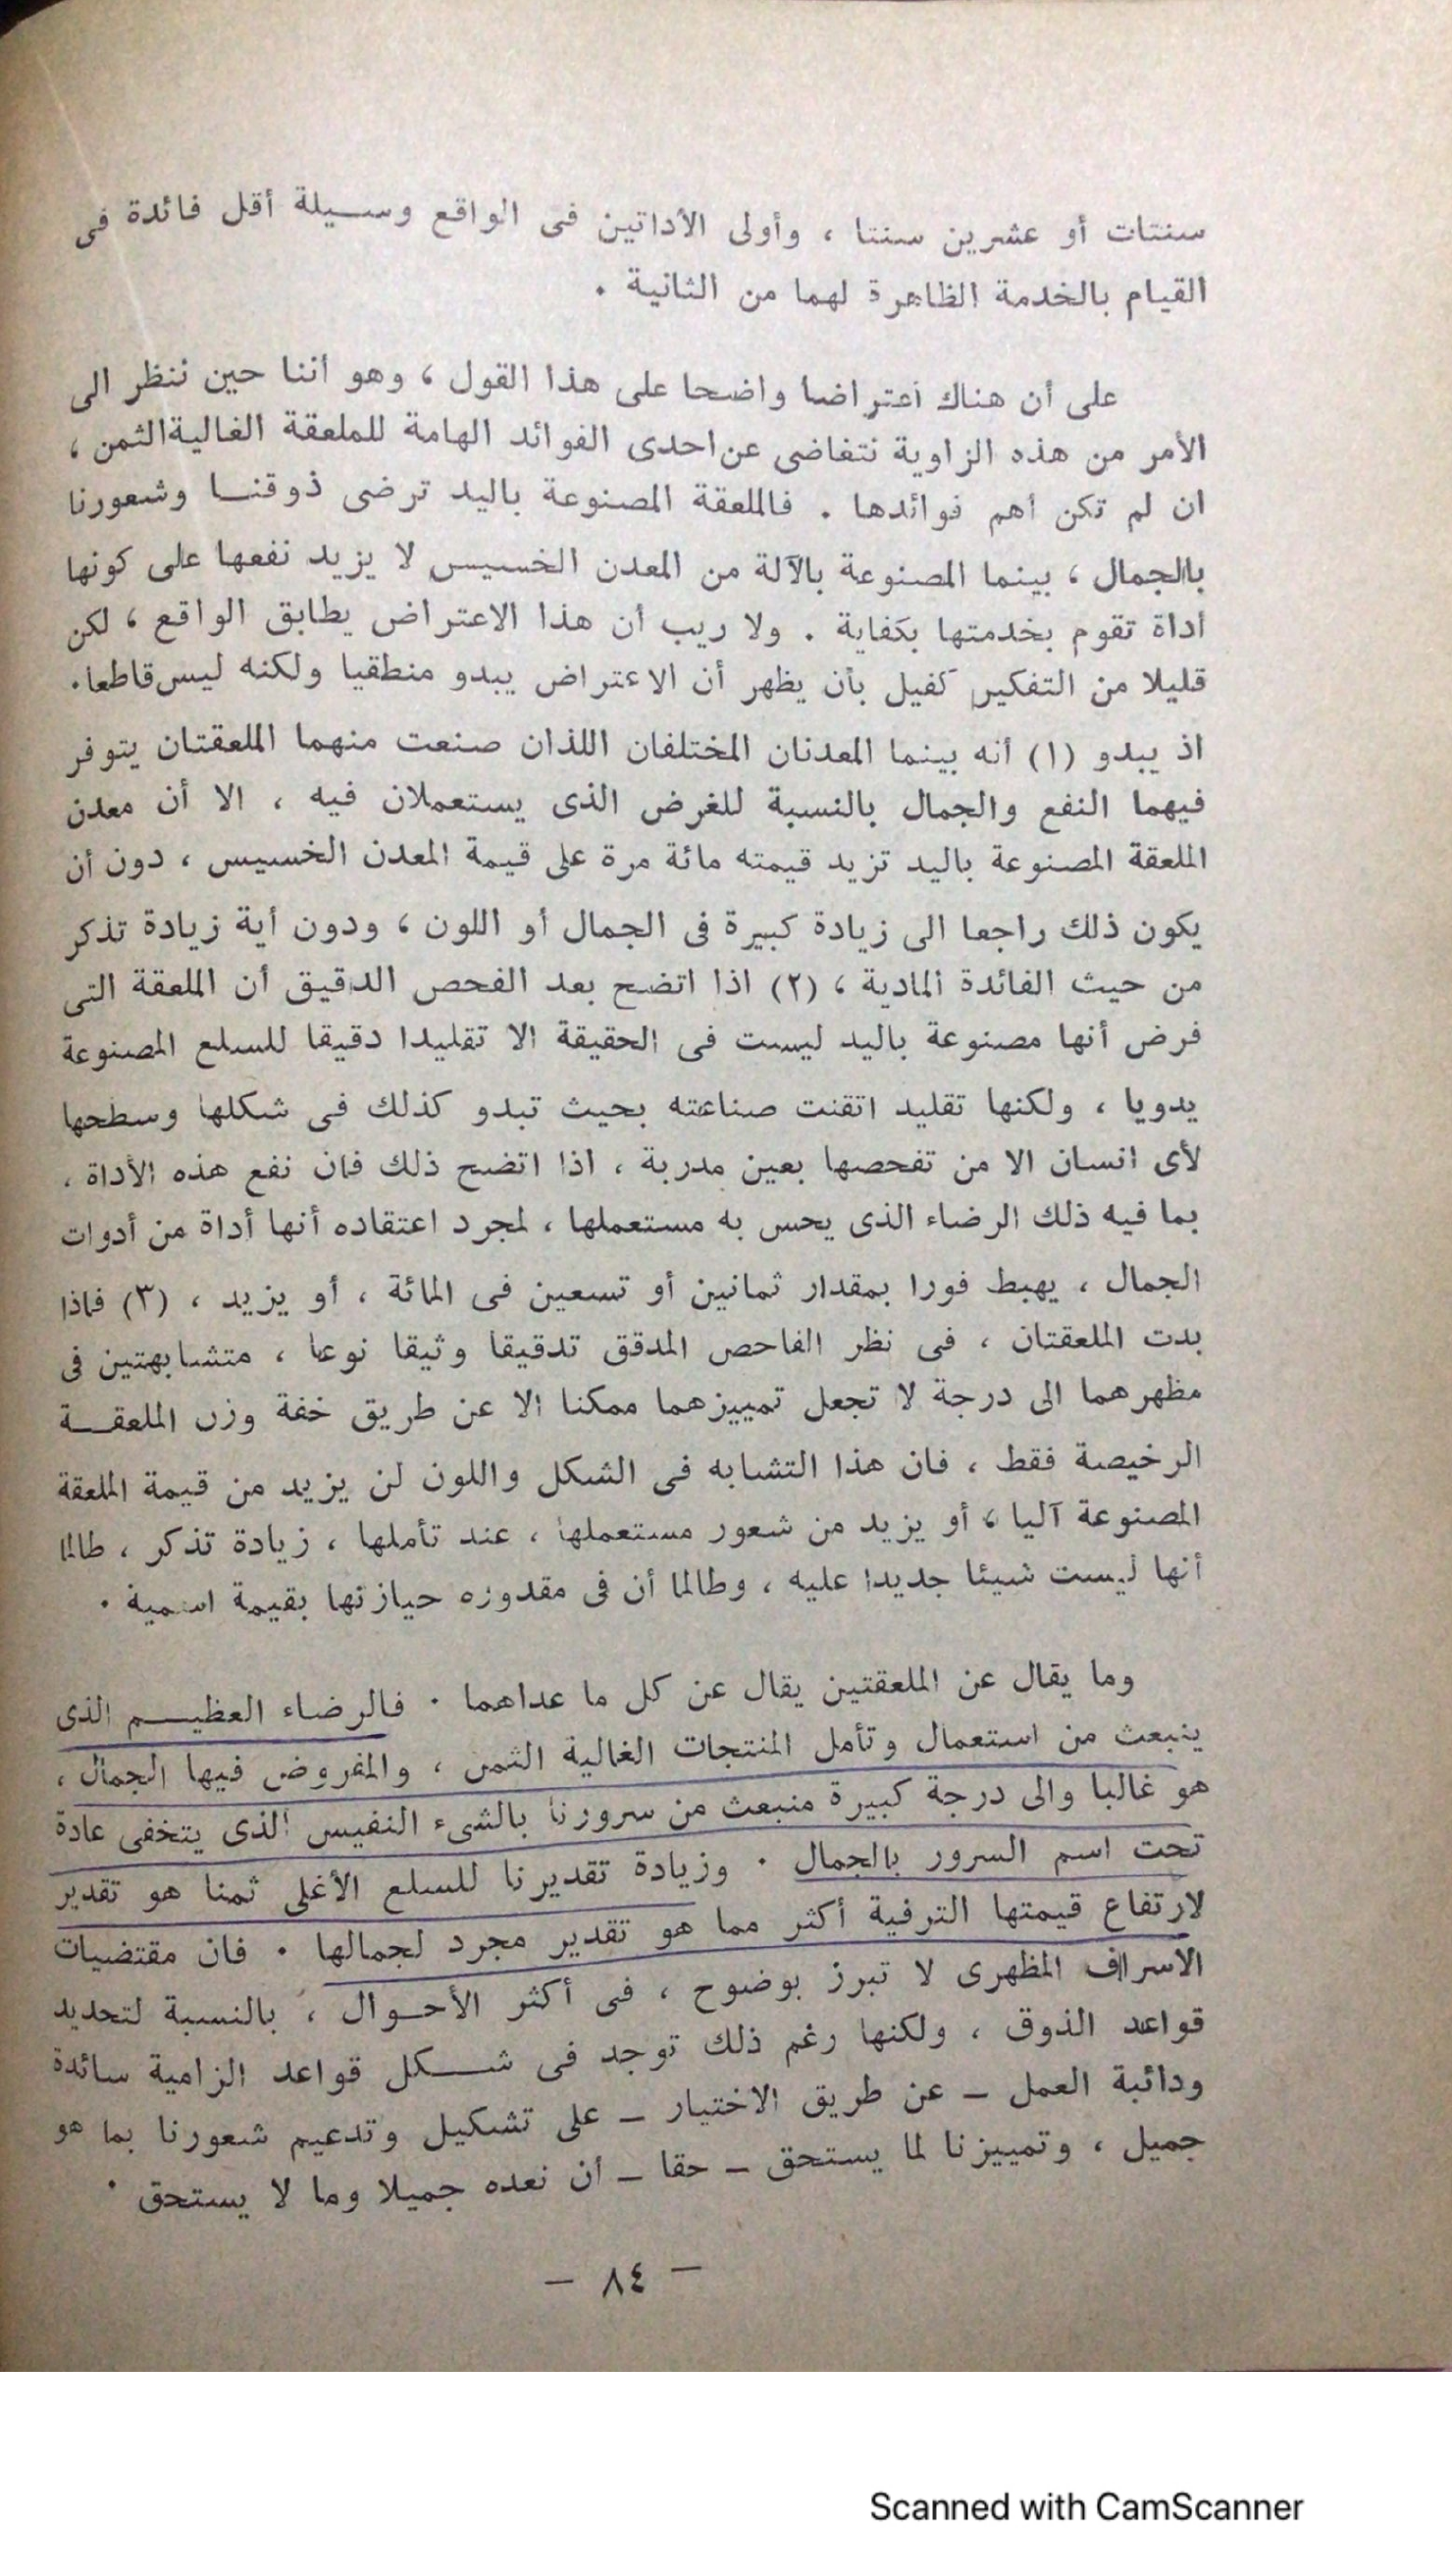 سنتات أو عشرين سنتا ، وأولى الأداتين فى الواقع وسيلة أقل فائدة فى
القيام بالخدمة الظاهرة لهما من الثانية .
على أن هناك اعتراضا واضحا على هذا القول ، وهو أننا حين ننظر الى
الأمر من هذه الزاوية نتغاضى عن احدى الفوائد الهامة للملعقة الغالية الثمن ،
ان لم تكن أهم فوائدها . فالملعقة المصنوعة باليد ترضى ذوقنا وشعورنا
بالجمال ، بينما المصنوعة بالآلة من المعدن الخسيس لا يزيد نفعها على كونها
أداة تقوم بخدمتها بكفاية . ولا ريب أن هذا الاعتراض يطابق الواقع ، لكن
قليلا من التفكير كفيل بأن يظهر أن الاعتراض يبدو منطقيا ولكنه ليس قاطعا .
اذ يبدو (١) أنه بينما المعدنان المختلفان اللذان صنعت منهما الملعقتان يتوفر
فيهما النفع والجمال بالنسبة للغرض الذى يستعملان فيه ، الا أن معدن
الملعقة المصنوعة باليد تزيد قيمته مائة مرة على قيمة المعدن الخسيس ، دون أن
يكون ذلك راجعا الى زيادة كبيرة فى الجمال أو اللون ، ودون أية زيادة تذكر
من حيث الفائدة المادية ، (٢) اذا اتضح بعد الفحص الدقيق أن الملعقة التى
فرض أنها مصنوعة باليد ليست فى الحقيقة الا تقليدا دقيقا للسلع المصنوعة
يدويا ، ولكنها تقليد اتقنت صناعته بحيث تبدو كذلك فى شكلها وسطحها
لأى انسان الا من تفحصها بعين مدربة ، اذا اتضح ذلك فان نفع هذه الأداة ،
بما فيه ذلك الرضاء الذى يحس به مستعملها ، لمجرد اعتقاده أنها أداة من أدوات
الجمال ، يهبط فورا بمقدار ثمانين أو تسعين فى المائة ، أو يزيد ، (٣) فاذا
بدت الملعقتان ، فى نظر الفاحص المدقق تدقيقا وثيقا نوعا ، متشابهتين فى
مظهرهما الى درجة لا تجعل تمييزهما ممكنا الا عن طريق خفة وزن الملعقة
الرخيصة فقط ، فان هذا التشابه فى الشكل واللون لن يزيد من قيمة الملعقة
المصنوعة آليا ، أو يزيد من شعور مستعملها ، عند تأملها ، زيادة تذكر ، طالما
أنها ليست شيئا جديدا عليه ، وطالما أن فى مقدوره حيازتها بقيمة اسمية .
وما يقال عن الملعقتين يقال عن كل ما عداهما . فالرضاء العظيم الذى
ينبعث من استعمال وتأمل المنتجات الغالية الثمن ، والمفروض فيها الجمال ،
هو غالبا والى درجة كبيرة منبعث من سرورنا بالشىء النفيس الذى يتخفى عادة
تحت اسم السرور بالجمال . وزيادة تقديرنا للسلع الأغلى ثمنا هو تقدير
لارتفاع قيمتها الترفية أكثر مما هو تقدير مجرد لجمالها . فان مقتضيات
الاسراف المظهرى لا تبرز بوضوح ، فى أكثر الأحوال ، بالنسبة لتحديد
قواعد الذوق ، ولكنها رغم ذلك توجد فى شكل قواعد الزامية سائدة
ودائبة العمل – عن طريق الاختيار – على تشكيل وتدعيم شعورنا بما هو
جميل ، وتمييزنا لما يستحق – حقا – أن نعده جميلا وما لا يستحق .
– ٨٤ –
Scanned with CamScanner